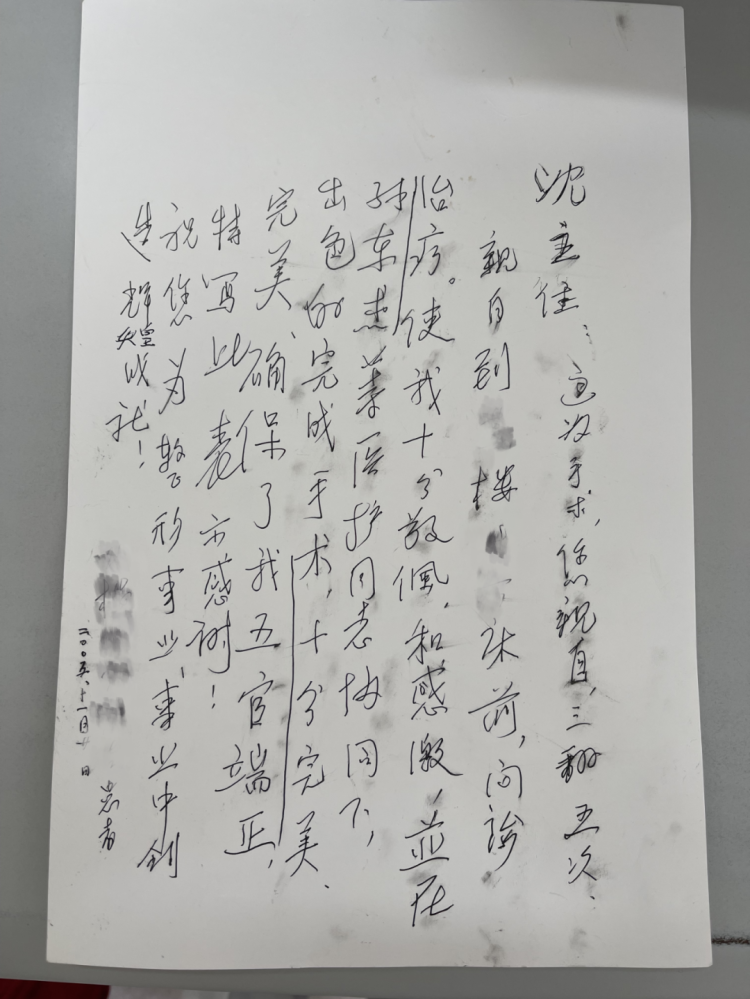 沈主任：这次手术，您亲自，三翻五次、
亲自到 楼 床前，问诊
治疗。使我十分敬佩，和感激，並在
孙东杰等医护同志协同下，
出色的完成手术，十分完美、
完美、确保了我五官端正，
特写此表示感谢！
祝您为整形事业，事业中创
造辉煌成就！
患者
二〇〇五、十一月 日